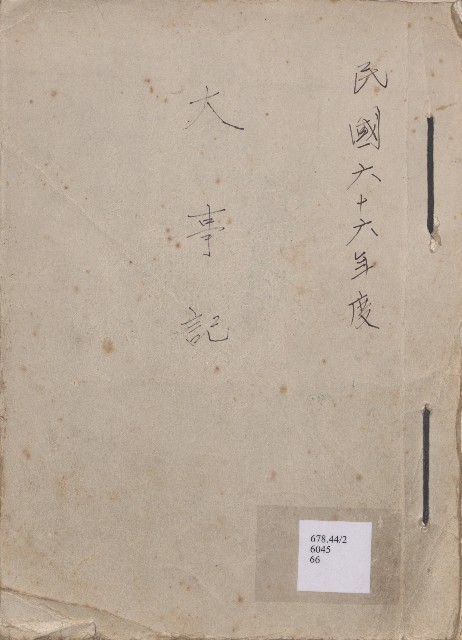 民國六十六年度
大事記
678.44/2
6045
66